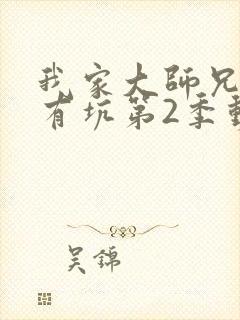 我家大師兄
有坑第2季動
吴錦